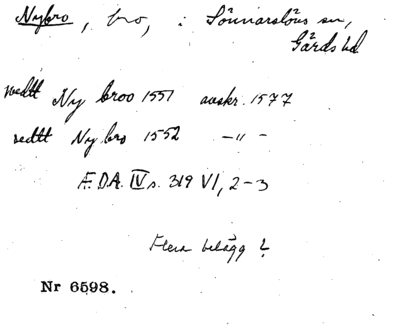 Nybro, bro, i Sönnarslövs sn,
Gärds hd
vedtt Ny broo 1551 avskr. 1577
vedtt Ny bro 1552 –"–
Æ.D.A. IV s. 319 VI, 2–3
Flera belägg?
Nr 6598.